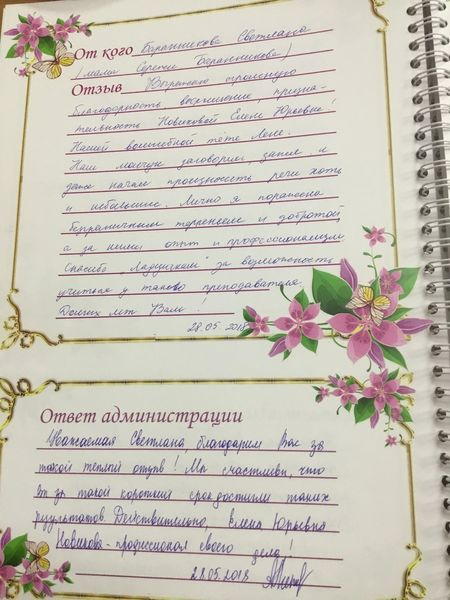 От кого Баранникова Светлана
(мама Сережи Баранникова)
Отзыв Выражаю огромную
благодарность восхищение, призна-
тельность Новиковой Елене Юрьевне!
Нашей волшебной тёте Лене.
Наш молчун заговорил, запел и
даже начал произносить речи хоть
и небольшие. Лично я поражена
безграничным терпением и добротой
а за ними опыт и профессионализм
Спасибо "Ладушкам" за возможность
учиться у такого преподавателя.
Долгих лет Вам!
28.05.2018
Ответ администрации
Уважаемая Светлана, благодарим Вас за
такой теплый отзыв! Мы счастливы, что
за такой короткий срок достигли таких
результатов. Действительно, Елена Юрьевна
Новикова - профессионал своего дела!
28.05.2018